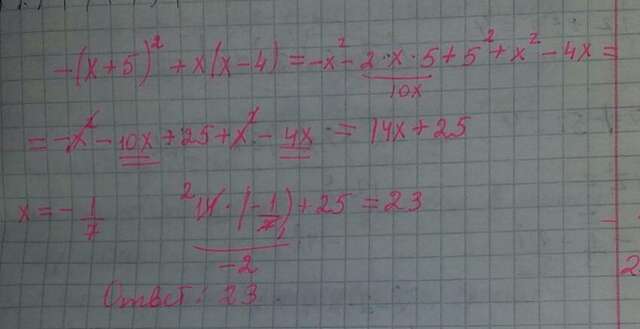 -(x+5)² + x(x-4) = -x² - 2·x·5 + 5² + x² - 4x =
10x
= -x² - 10x + 25 + x² - 4x = 14x + 25
x = -1/7 2 14·(-1/7) 1 + 25 = 23
-2
Ответ: 23
2